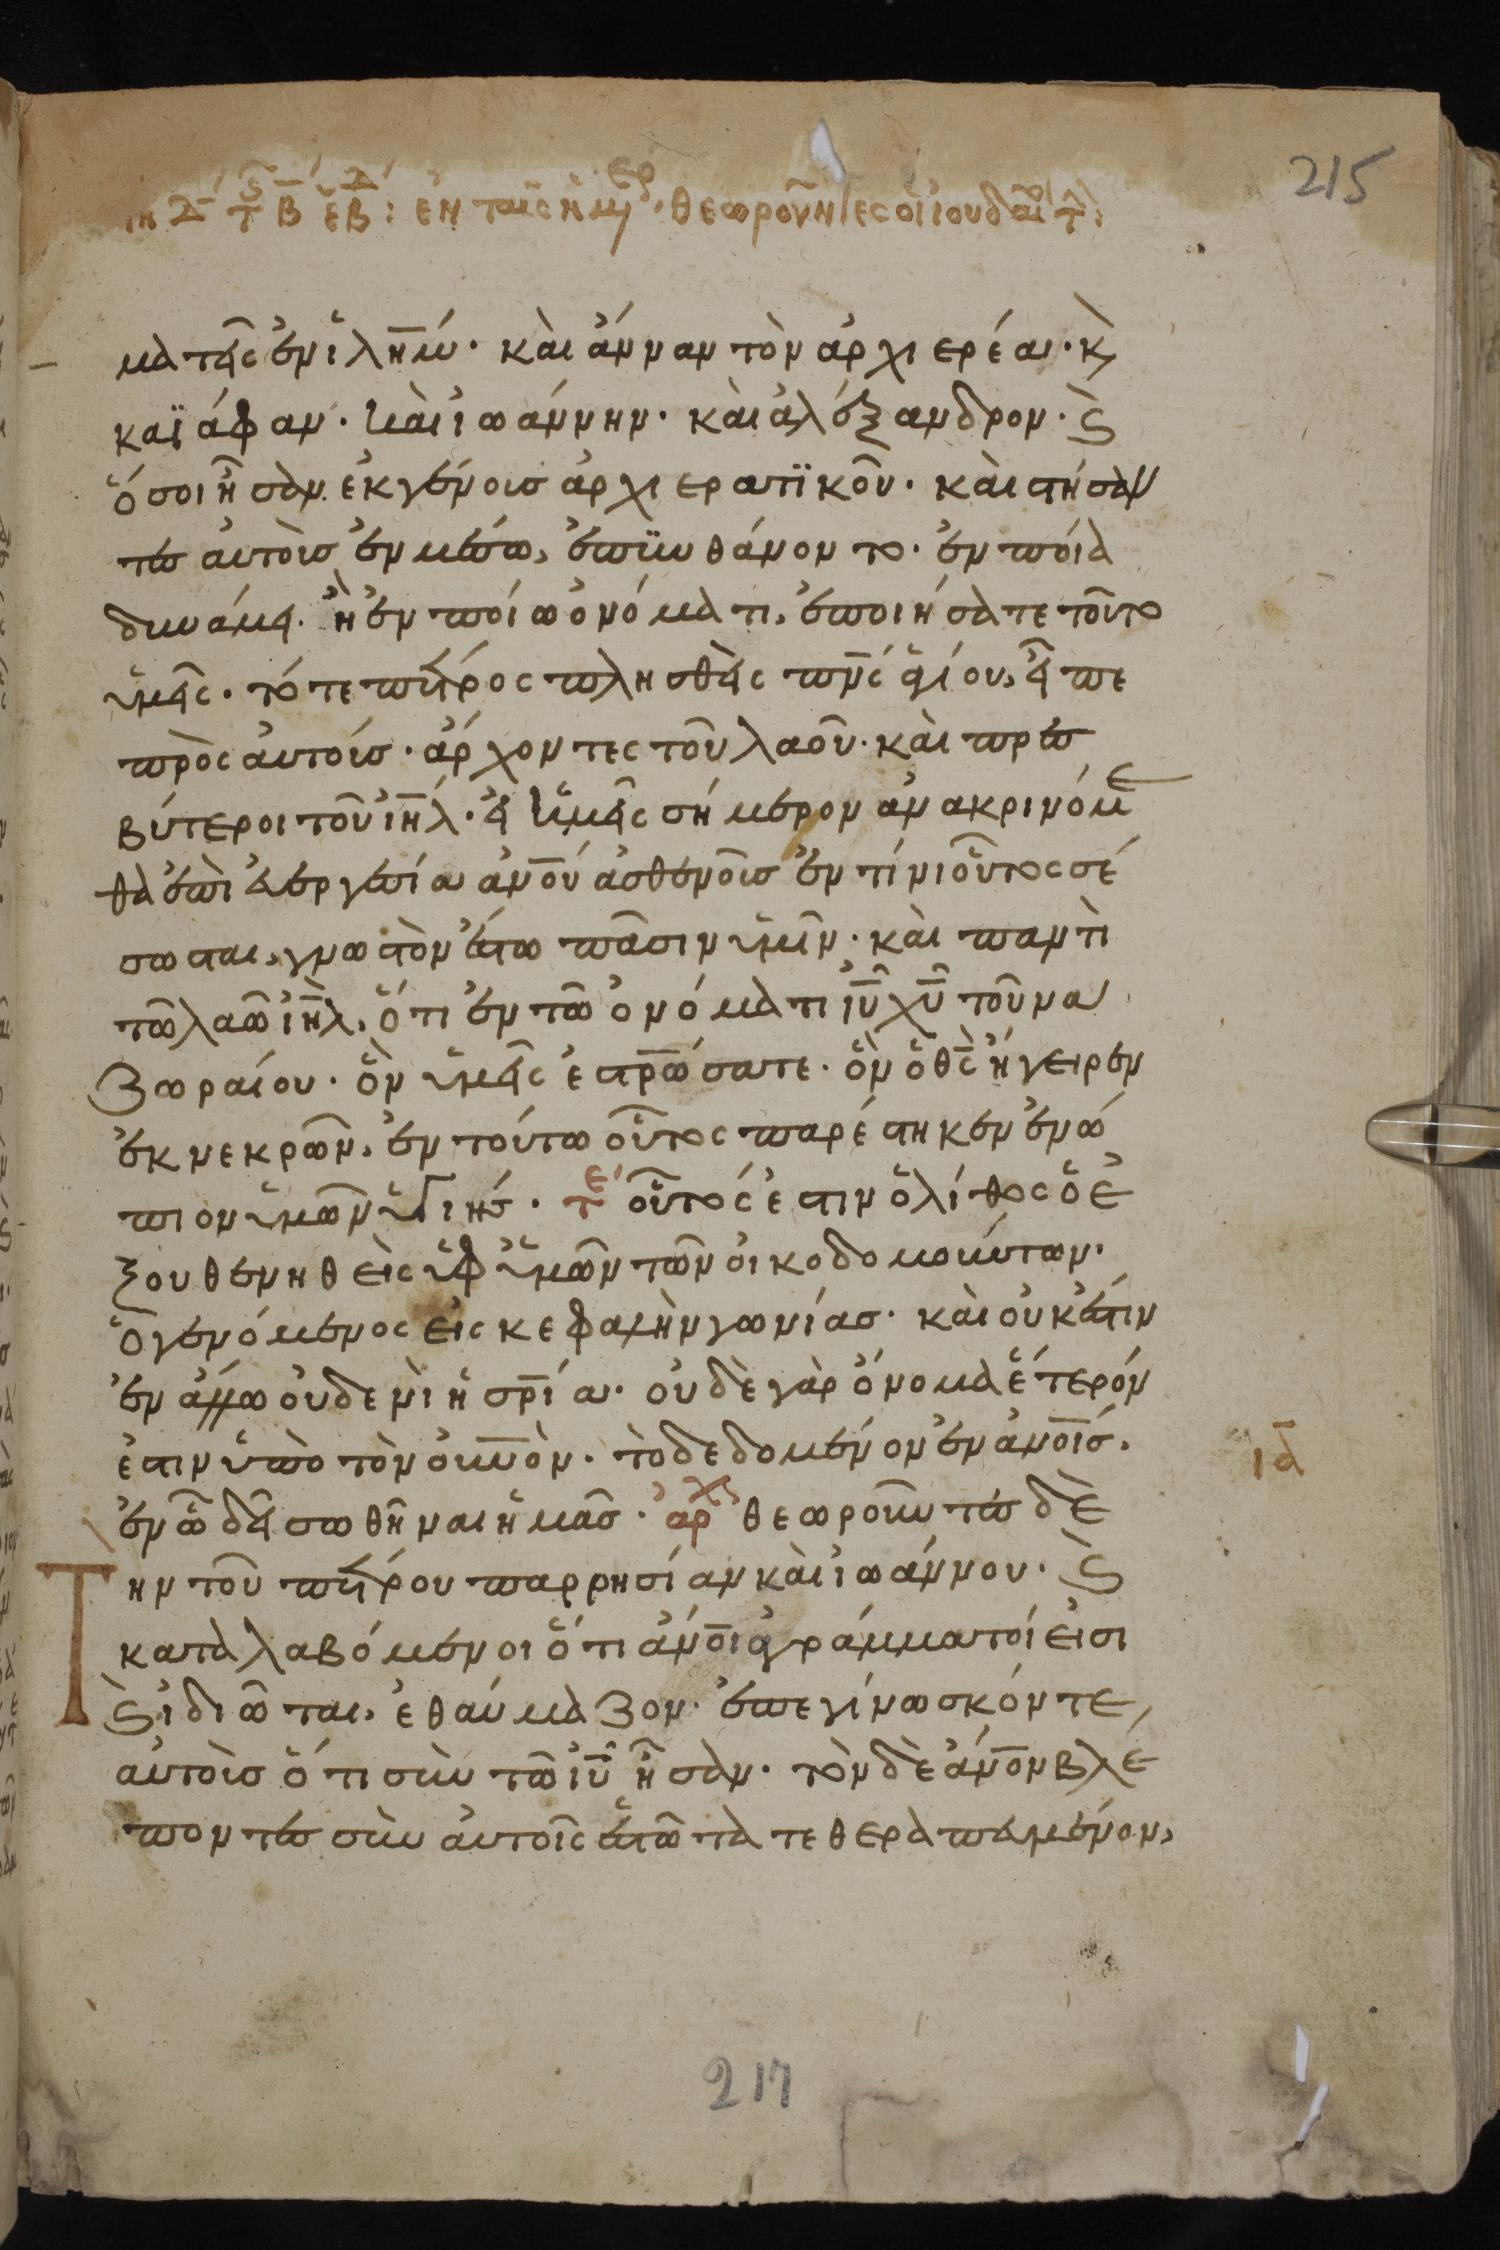 215
Δ τ̄ς β̄ ἑβδ: ἐν ταῖς ἡμερ· θεωροῦντες οἱ ἰουδαῖοι τ:
ματεῖς ἐν ἱλη̄μ· καὶ ἄνναν τὸν ἀρχιερέα· κ̀
καϊάφαν· καὶ ἰωάννην· καὶ ἀλέξανδρον· ϛ̀
ὅσοι ἦσαν ἐκ γένους ἀρχιερατϊκοῦ· καὶ στήσαν
τες αὐτοὺς ἐν μέσω, ἐπυνθάνοντο· ἐν ποία
δυνάμει· ἢ ἐν ποίω ὀνόματι, ἐποιήσατε τοῦτο
ὑμεῖς· τότε πέτρος πλησθεὶς πν̄ς ἁγίου, εἶπε
πρὸς αὐτούς· ἄρχοντες τοῦ λαοῦ· καὶ πρεσ
βύτεροι τοῦ ἰη̄λ· εἰ ἡμεῖς σήμερον ἀνακρινόμε
θα ἐπὶ εὐεργεσία αν̄ου ἀσθενοῦς ἐν τίνι οὗτος σέ
σωσται, γνωστὸν ἔστω πᾶσιν ὑμῖν· καὶ παντὶ
τῶ λαῶ ἰη̄λ, ὅτι ἐν τῶ ὀνόματι ἰῡ χῡ τοῦ να
ζωραίου· ὃν ὑμεῖς ἐστρ̄ώσατε· ὃν ὁ θς̄ ἤγειρεν
ἐκ νεκρῶν, ἐν τούτω οὗτος παρέστηκεν ἐνώ
πιον ὑμῶν ὑγιής· τε οὗτός ἐστιν ὁ λίθος ὁ ἐ
ξουθενηθεὶς ὑφ ὑμῶν τῶν οἰκοδομούντων·
ὁ γενόμενος εἰς κεφαλὴν γωνίας· καὶ οὐκ ἔστιν
ἐν ἄλλω οὐδενὶ ἡ σρ̄ία· οὐδὲ γὰρ ὄνομα ἕτερόν
ἐστιν ὑπὸ τὸν οὐν̄ον· τὸ δεδομένον ἐν αν̄οις·
ιδ̄
ἐν ὧ δεῖ σωθῆναι ἡμᾶς· ἀρχ θεωροῦντες δὲ
Τὴν τοῦ πέτρου παρρησίαν καὶ ἰωάννου· ϛ̀
καταλαβόμενοι ὅτι ἄν̄οι ἀγράμματοί εἰσι
ϛ̀ ἰδιῶται, ἐθαύμαζον· ἐπεγίνωσκόν τε
αὐτοὺς ὅτι σὺν τῶ ἰῡ ἦσαν· τὸν δὲ ἄν̄ον βλέ
ποντες σὺν αὐτοῖς ἑστῶτα τεθεραπευμένον,
217